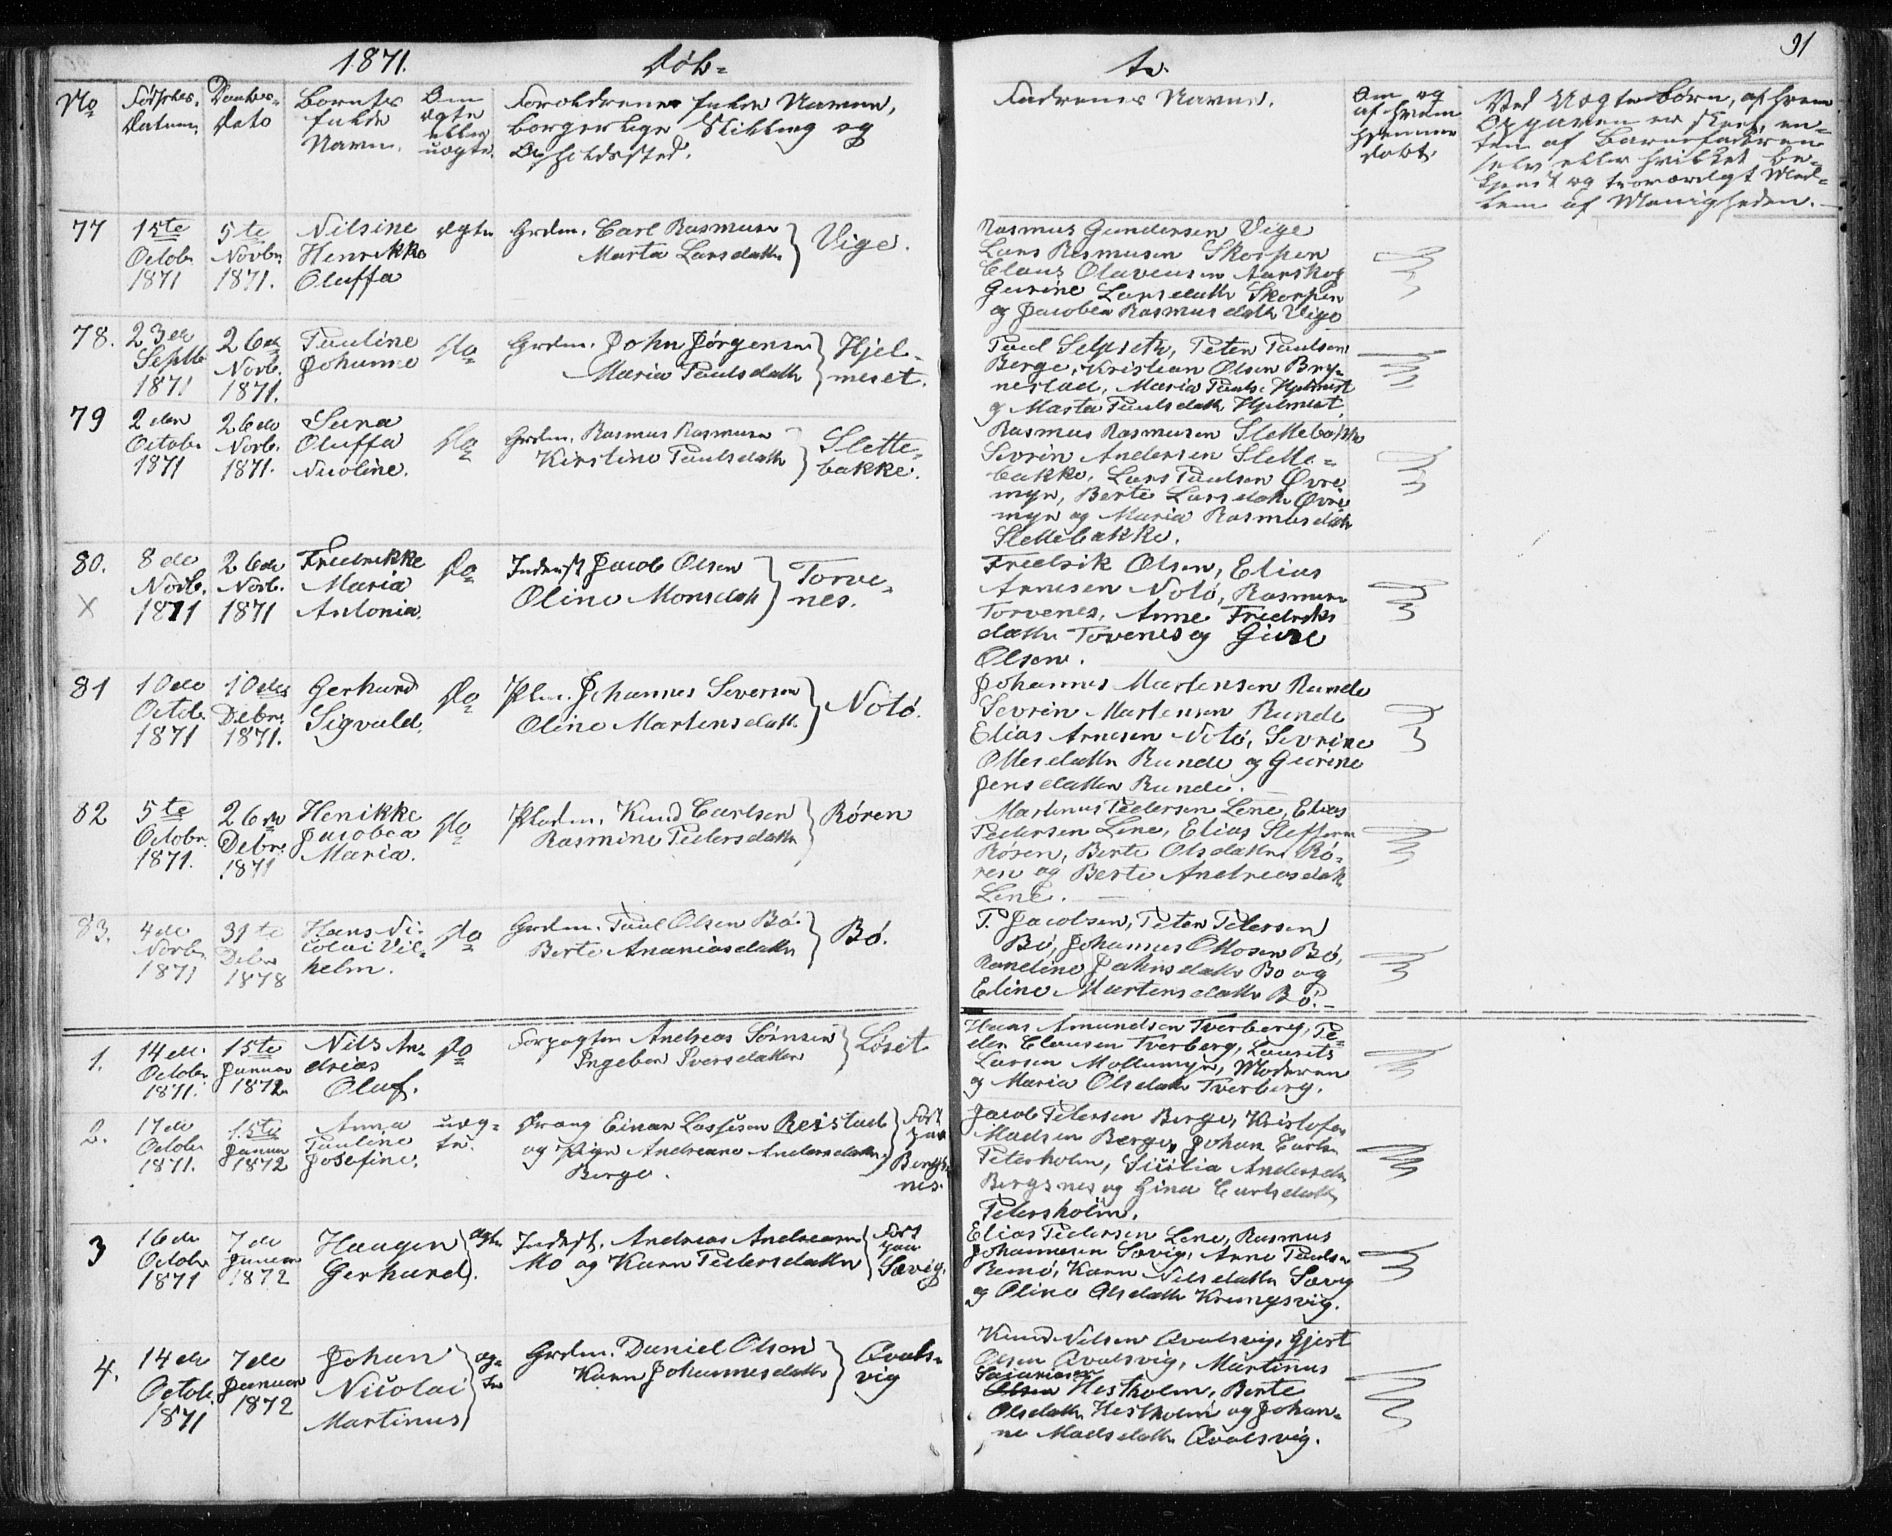 1871. Døb=
te.
91
No
Fødsels-
Datum,
Daabs-
Dato
Barnets
fulde
Navn.
Om
ægte
eller
uægte.
Forældrenes fulde Navne,
borgerlige Stilling og
Opholdssted.
Faddrenes Navne.
Om og
af hvem
hjemme
døbt.
Ved Uægte børn, af hvem
Opgaven er skeet, en=
ten af Barnefaderen
selv eller hvilket be=
kjendt og troværdigt Med=
lem af Menigheden.
77
15te
Octobr
1871
5te
Novbr.
1871.
Nilsine
Henrikke
Oluffa
ægte
Grdm. Carl Rasmusen
Marta Larsdatter
Vige.
Rasmus Gundersen Vige
Lars Rasmusen Skorpen
Claus Olavensen Aarskog
Gurine Larsdatter Skorpen
og Jacobea Rasmusdatter Vige
78.
23de
Septb
1871
26de
Novb.
1871.
Pauline
Johanne
Do
Grdm. John Jørgensen
Maria Paulsdatter
Hjel=
meset.
Paul Selseth, Peter Paulsen
Berge, Kristian Olsen Bry=
nestad, Maria Pauls. Hjelmeset
og Marta Paulsdatter Hjelmeset.
79
2den
Octobr
1871
26de
Novb.
1871.
Severa
Oluffa
Nicoline.
Do
Grdm. Rasmus Rasmusen
Kirstine Paulsdatter
Slette=
bakke.
Rasmus Rasmusen Slettebakke
Sevrin Andersen Slette=
bakke, Lars Paulsen Øvre
myr, Berte Larsdatter Øvre
myr og Maria Rasmusdatter
Slettebakke.
80.
X
8de
Novb.
1871
26de
Novb.
1871
Fredrikke
Maria
Antonia.
Do
Inderst Jacob Olsen
Oline Monsdatter
Torve=
nes.
Fredrik Olsen, Elias
Arnesen Notø, Rasmus
Torvenes, Anne Fredriks
datter Tovenes og Giae
Olsen.
81
10de
Octob.
1871
10de
Debr.
1871.
Gerhard
Sigvald.
Do
Plm. Johannes Seversen
Oline Martensdatter
Notø.
Johannes Martensen Runde
Sevrin Martensen Runde
Elias Arnesen Notø, Sevrine
Ottesdatter Runde og Gurine
Jensdatter Runde.
82
5te
Octobr.
1871.
26de
Debr.
1871
Henikke
Jacobea
Maria.
Do
Pladm. Knud Carlsen
Rasmine Pedersdatter
Røren
Martinus Pedersen Lene, Elias
Pedersen Lene, Elias Steffensen
Røren, Berte Olsdatter Rø=
ren og Berte Andreasdatter
Lene.
83.
4de
Novbr.
1871
31te
Debr
1878
Hans Ni=
colai Vil=
helm.
Do
Grdm. Paul Olsen Bø.
Berte Ananiasdatter
Bø.
P. Jacobsen, Peter Petersen
Bø, Johannes Ottosen Bø,
Randine Jahnsdatter Bø og
Eline Martensdatter Bø.
1.
14de.
Octobr
1871.
15te
Januar
1872
Nils An=
drias
Oluf.
Do
Forpagter Andreas Sørensen
Ingebor Iversdatter
Løset
Hans Amundsen Tverberg, Pe=
der Clausen Tverberg, Laurits
Larsen Mollemyr, Moderen
og Maria Olsdatter Tverberg.
2.
17de
Octobr
1871.
15te
Januar
1872
Anna
Pauline
Josefine.
uæg=
te.
Dreng Einar Lassesen Reistad
og Pige Andreane Andersdatter
Berge.
Født
paa
Bergs=
nes.
Jacob Petersen Berge, Kristofer
Madsen Berge, Johan Carlsen
Petersholm, Sicilia Andersdatter
Bergsnes og Gina Carlsdatter
Petersholm.
3
16de
Octobr
1871
7de
Januar
1872
Haagen
Gerhard.
ægte
Inderst, Andreas Andreasen
Mo og Karn Pedersdatter
Født
paa
Sævig.
Elias Pedersen Lene, Rasmus
Johannesen Sævig, Arne Paulsen
Remø, Karn Nilsdatter Sævig
og Oline Olsdatter Kremgsvig.
4.
14de
Octob.
1871
7de
Januar
1872
Johan
Nicolai
Martinus
æg=
te
Grdm. Daniel Olsen
Karn Johannesdatter
Qvals=
vig
Knud Nilsen Qvalsvig, Gjert
Olsen Qvalsvig, Martinus
Olsen Hestholm, Berte
Olsdatter Hestholm og Johan=
ne Madsdatter Qvalsvig.